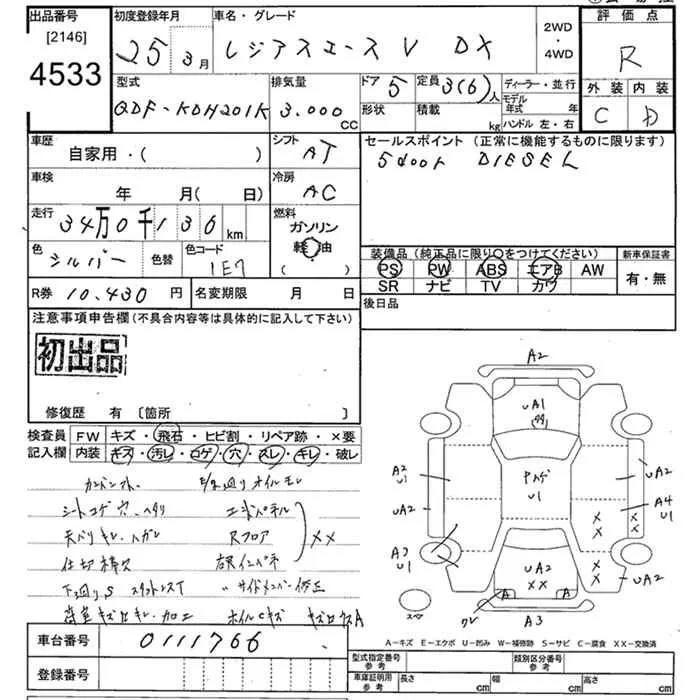 出品番号
[2146]
4533
初度登録年月
25 3月
車名・グレード
レジアスエース V DX
2WD
・
4WD
評価点
R
外装 内装
C D
型式
QDF-KDH201K
排気量
3.000
CC
ドア 5
定員 3(6)人
形状
積載
kg
ディーラー・並行
モデル年式 年
ハンドル 左・右
車歴
自家用・( )
シフト
AT
セールスポイント (正常に機能するものに限ります)
5door DIESEL
車検
年 月(日)
冷房
AC
走行
34万0千136 km
燃料
ガソリン
軽油
( )
色
シルバー
色替
色コード
1E7
装備品(純正品に限り○をつけてください)
PS PW ABS エアB AW
SR ナビ TV カワ
新車保証書
有・無
R券 10.430 円
名変期限 月 日
後日品
注意事項申告欄(不具合内容等は具体的に記入して下さい)
初出品
修復歴 有 [箇所 ]
検査員記入欄
FW キズ・飛石・ヒビ割・リペア跡・×要
内装 キズ・汚レ・コゲ・穴・スレ・キレ・破レ
下廻りオイルモレ
シートコゲ穴、ヘタリ エンドパネル
天バリキレ、ハガレ Rフロア
××
仕切棒欠
下廻りS
サイドメンバー修正
加工 ホイルCキズ
A2
UA1
PハゲU1
A2
U1
UA2
A3
U1
UA2
A4
U1
××
××
UA2
UA2
××
A A
ワレ
A3
スペ
A-キズ E-エクボ U-凹み W-補修跡 S-サビ C-腐食 XX-交換済
車台番号 0111766
登録番号
型式指定番号
参考
類別区分番号
参考
車庫証明用
参考
長さ cm
幅 cm
高さ cm